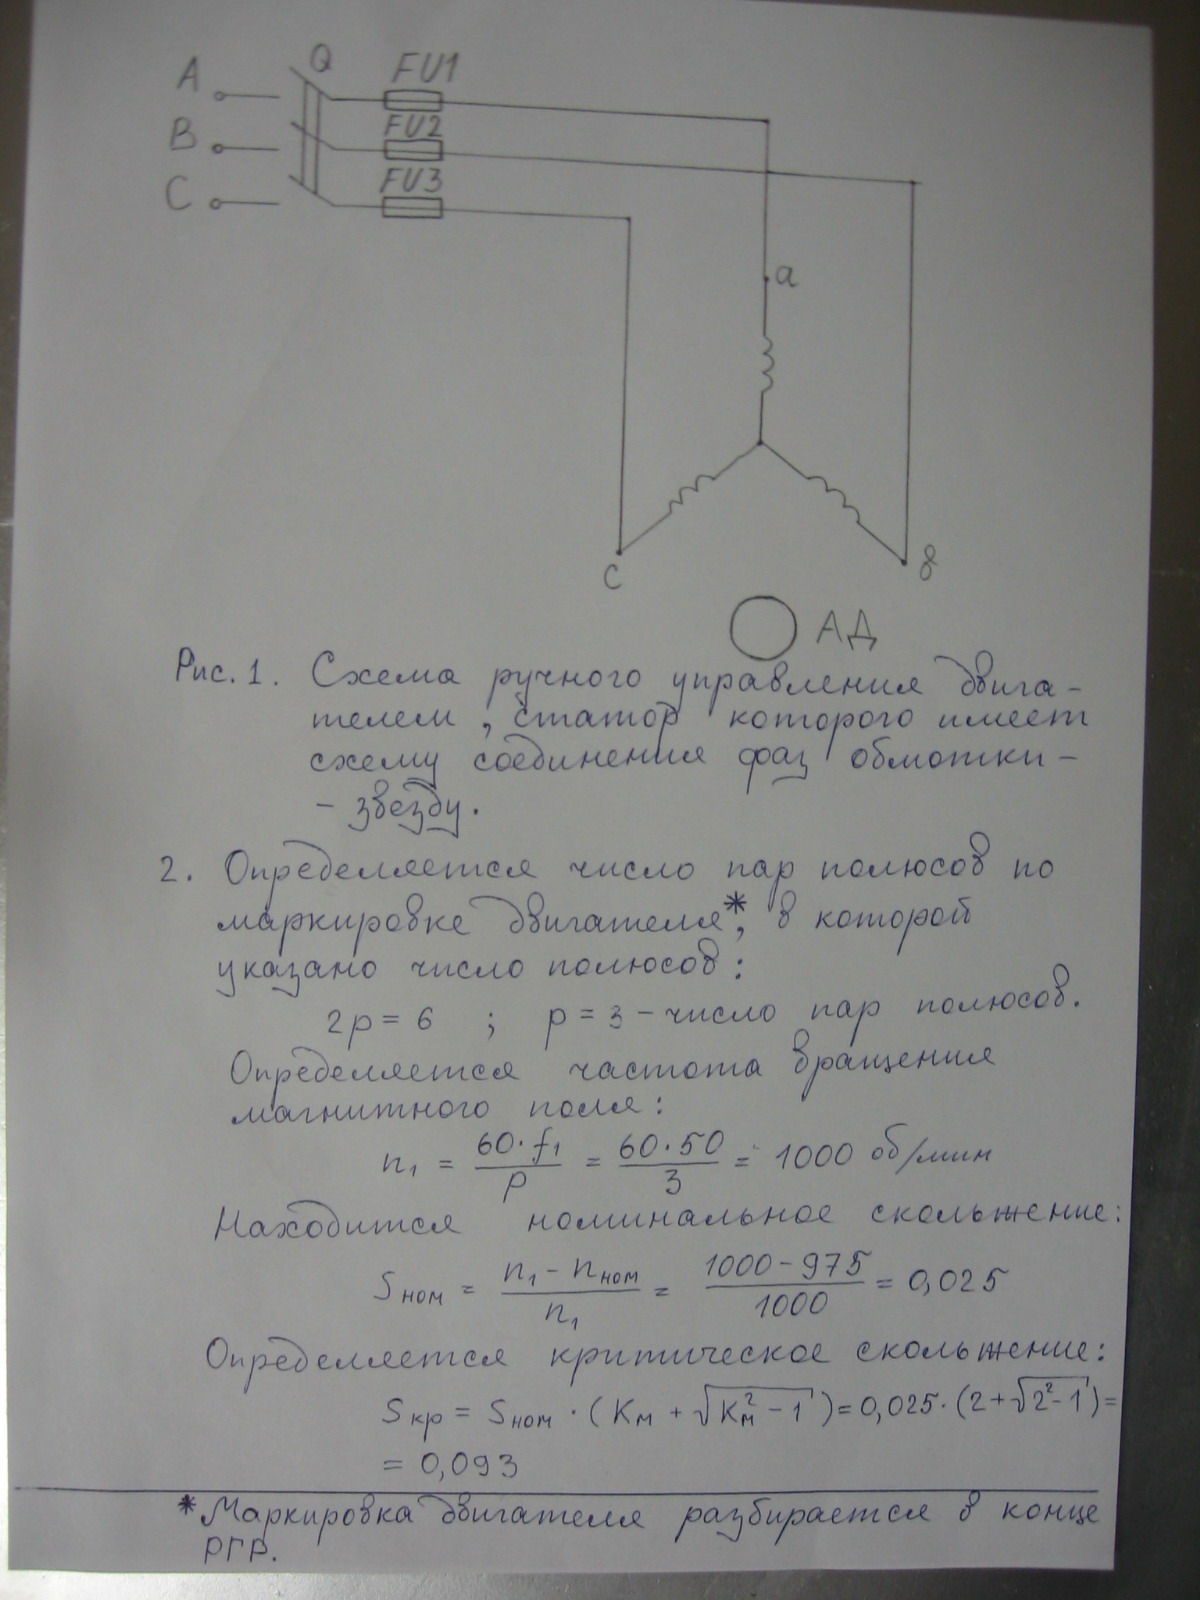 A
Q
FU1
B
FU2
C
FU3
a
c
в
АД
Рис. 1. Схема ручного управления двига-
телем, статор которого имеет
схему соединения фаз обмотки -
- звезду.
2. Определяется число пар полюсов по
маркировке двигателя*, в которой
указано число полюсов:
2p = 6 ; p = 3 - число пар полюсов.
Определяется частота вращения
магнитного поля:
n₁ = 60·f₁ / p = 60·50 / 3 = 1000 об/мин
Находится номинальное скольжение:
Sном = n₁ - nном / n₁ = 1000 - 975 / 1000 = 0,025
Определяется критическое скольжение:
Sкр = Sном · (Kм + √Kм² - 1) = 0,025 · (2 + √2² - 1) =
= 0,093
* Маркировка двигателя разбирается в конце
РГР.